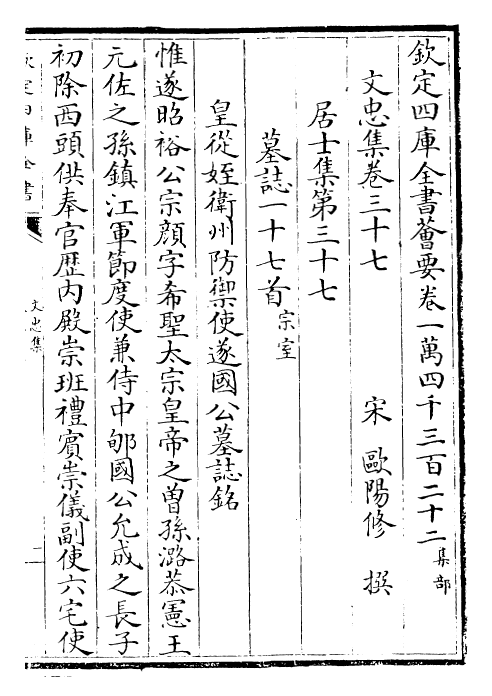 欽定四庫全書薈要卷一萬四千三百二十二集部
文忠集卷三十七
宋 歐陽修 撰
居士集第三十七
墓誌一十七首宗室
皇從姪衛州防禦使遂國公墓誌銘
惟遂昭裕公宗顔字希聖太宗皇帝之曽孫潞恭憲王
元佐之孫鎮江軍節度使兼侍中郇國公允成之長子
初除西頭供奉官歴内殿崇班禮賓崇儀副使六宅使
欽定四庫全書
文忠集